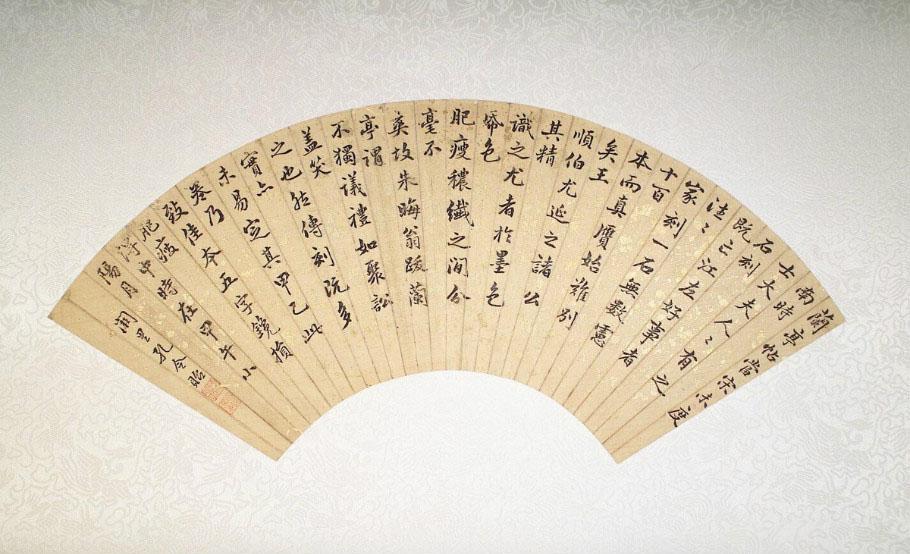 蘭亭帖當宋未度
南時
士大夫人〻有之
石刻
既亡江左好事者
往〻
家刻一石無數慮
十百
本而真贗始難別
矣王
順伯尤延之諸公
其精
識之尤者於墨色
帋色
肥瘦穠纖之間分
毫不
爽故朱晦翁跋蘭
亭謂
不獨議禮如聚訟
蓋笑
之也然傳刻既多
實亦
未易定其甲乙此
卷乃
致佳本五字鑱損
肥瘦
得中時在甲午小
陽月
闕里孔令貽